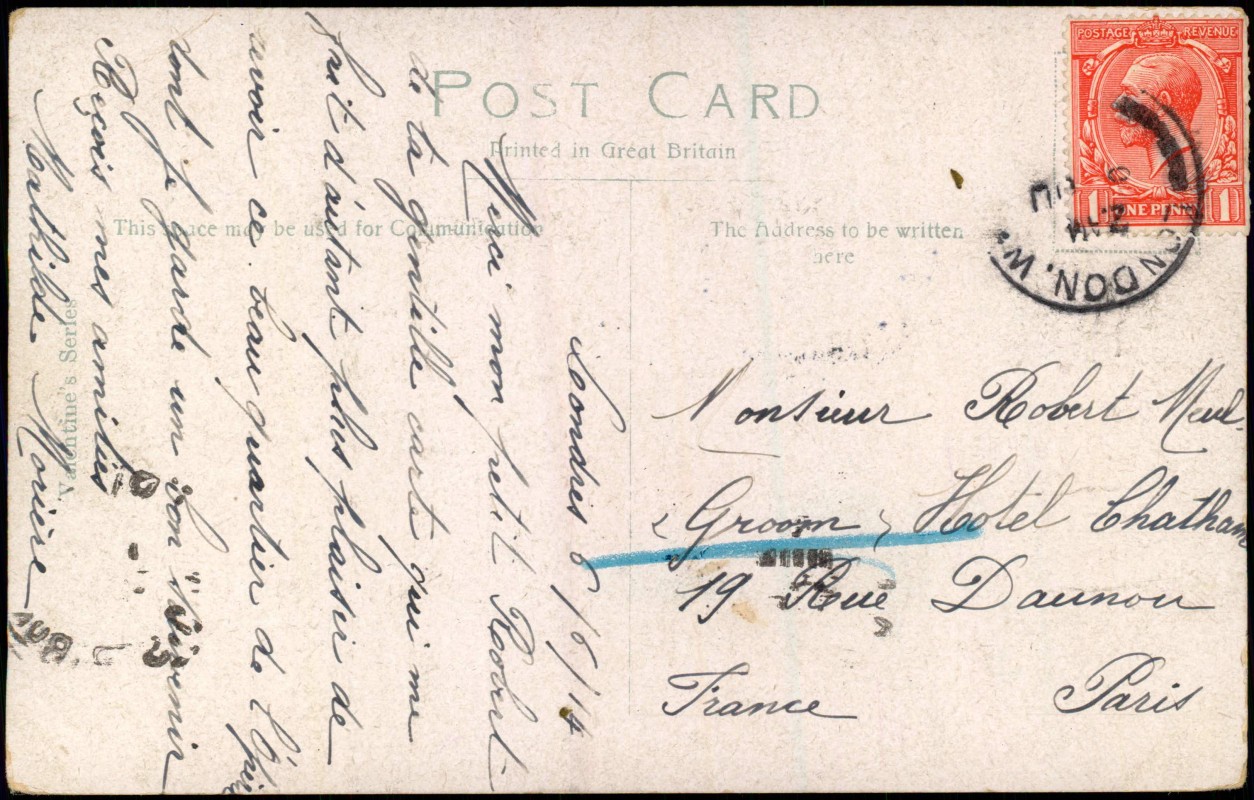 POST CARD
Printed in Great Britain
This space may be used for Communication
The Address to be written
here
Valentine's Series
POSTAGE REVENUE
1 ONE PENNY 1
LONDON. W.
Londres 6/6/14
Merci mon petit Robert
de ta gentille carte qui me
fait d'autant plus plaisir de
avoir ce beau quartier de l'Opéra
dont je garde un bon souvenir
Reçois mes amitiés
Mathilde
Monsieur Robert
(Groom) Hotel Chatham
19 Rue Daunou
France Paris